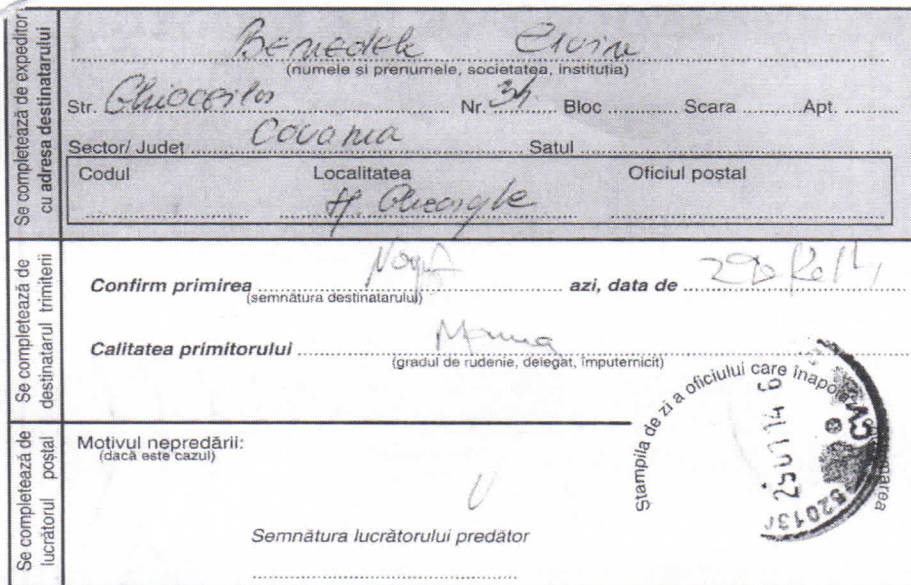 Se completează de expeditor
cu adresa destinatarului
BENEDEK
(numele și prenumele, societatea, instituția)
Str. Ghioceilor Nr. 34. Bloc Scara Apt.
Sector/ Județ Covasna Satul
Codul Localitatea Oficiul postal
Gheorghe
Se completează de
destinatarul trimiterii
Confirm primirea azi, data de
(semnătura destinatarului)
Calitatea primitorului Mama
(gradul de rudenie, delegat, împuternicit)
Se completează de
lucrătorul postal
Motivul nepredării:
(dacă este cazul)
Semnătura lucrătorului predător
Ștampila de zi a oficiului care înapo marea